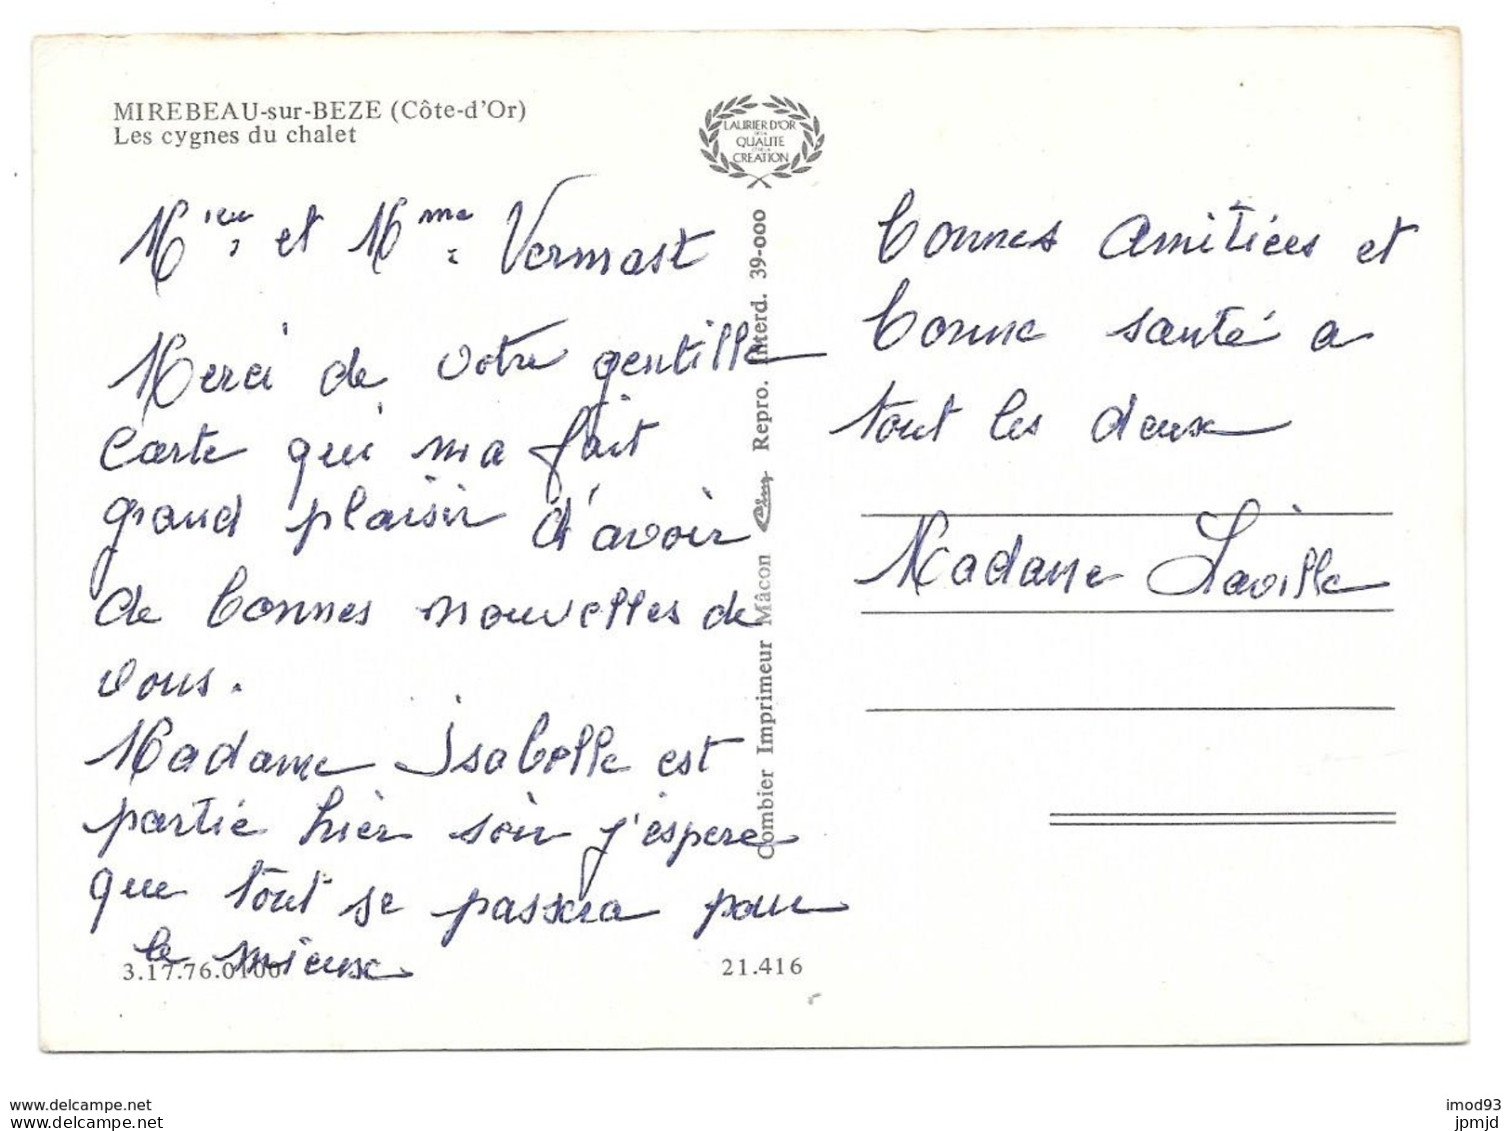 MIREBEAU-sur-BEZE (Côte-d'Or)
Les cygnes du chalet
LAURIER D'OR
DE LA
QUALITE
ET DE LA
CREATION
Mieu et Mme Vermast
Merci de votre gentille
carte qui ma fait
grand plaisir d'avoir
de bonnes nouvelles de
vous.
Madame Isabelle est
partie hier soir j'éspere
que tout se passera pour
le mieux
3.17.76.0100
21.416
Combier Imprimeur Mâcon Repro. Interd. 39-000
bonnes amitiées et
bonne santé a
tout les deux
Madame Laville
www.delcampe.net
www.delcampe.net
imod93
jpmjd